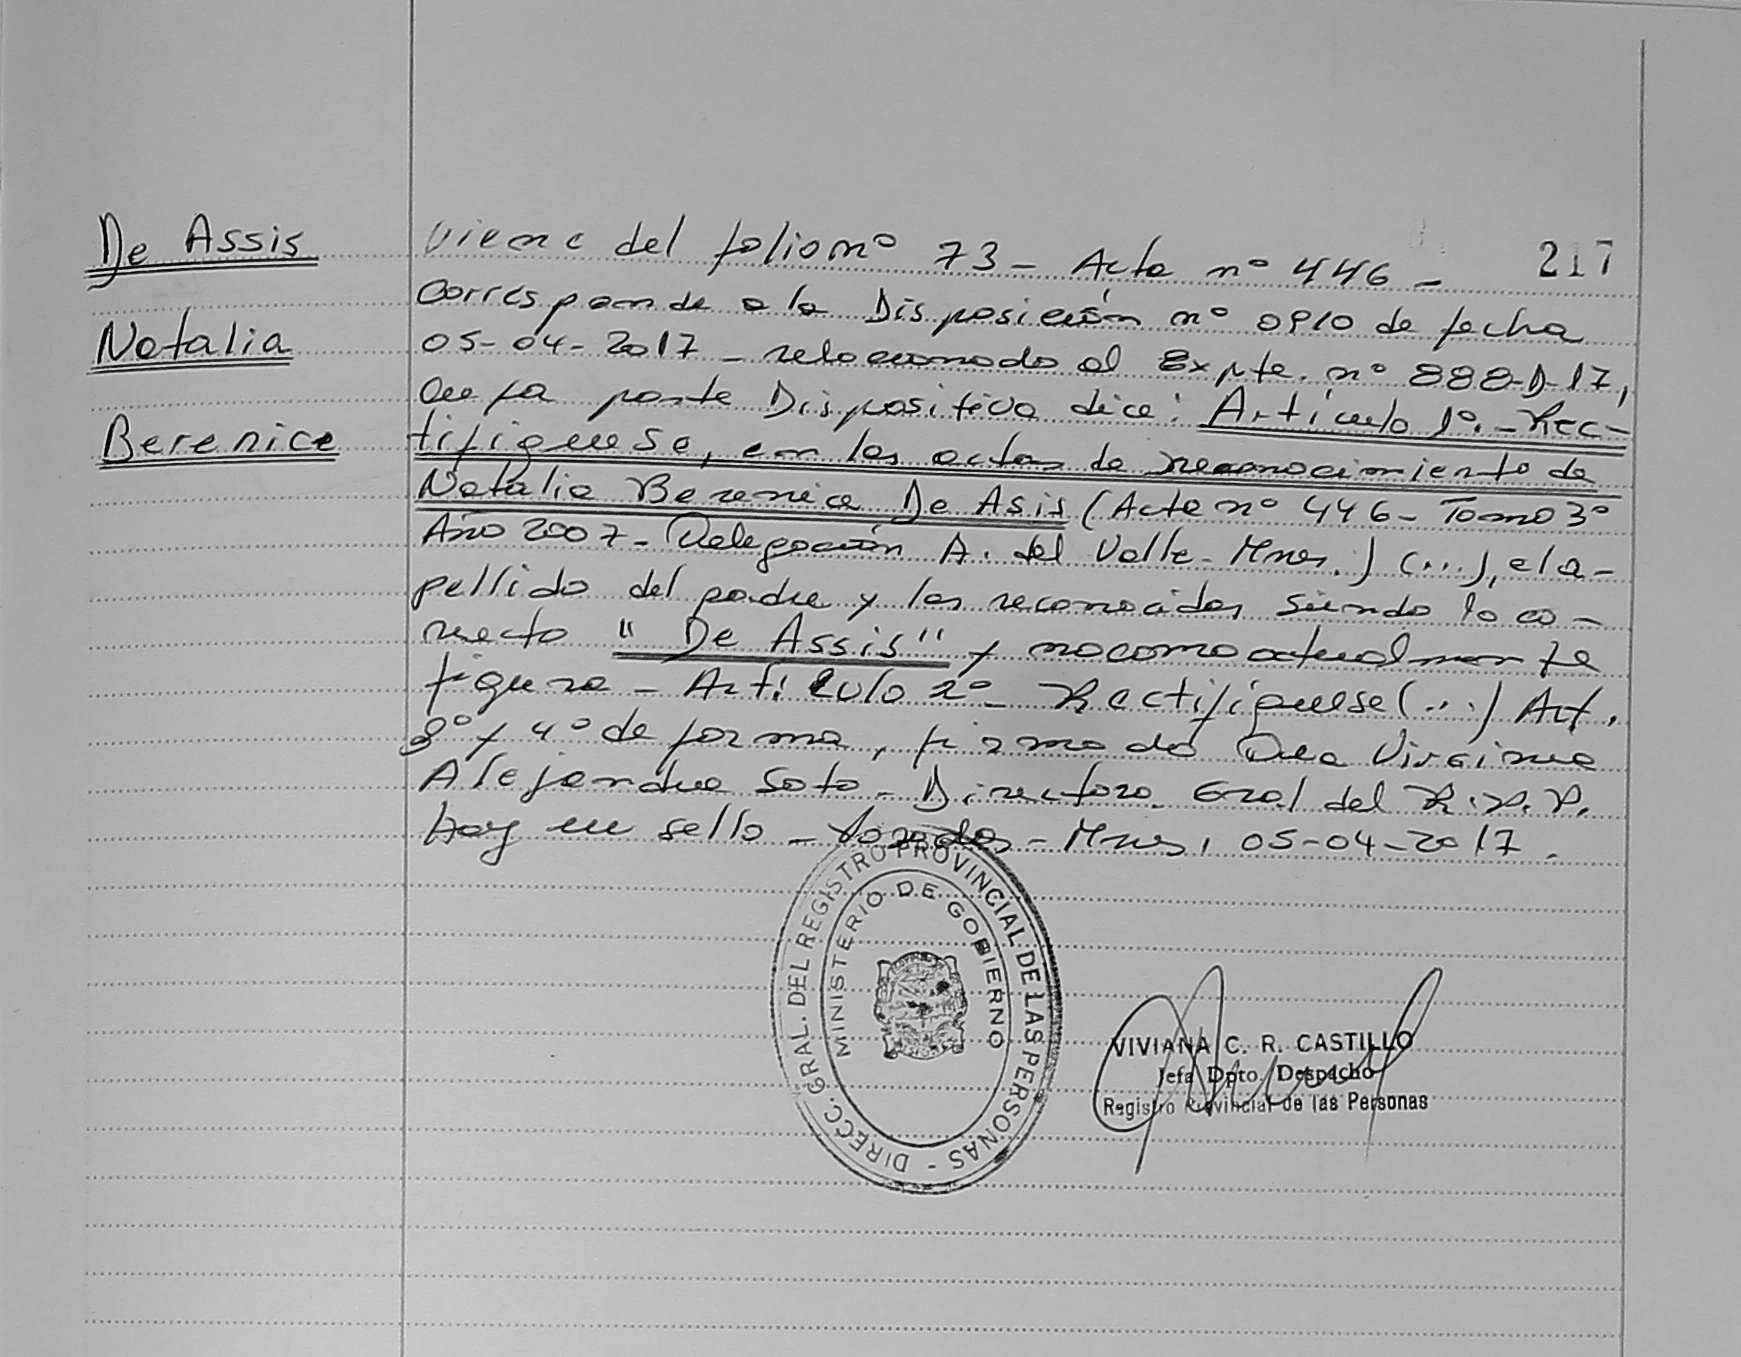 De Assis
Natalia
Berenice
217
Viene del folio nº 73 - Acta nº 446 -
Corresponde a la Disposición nº 0910 de fecha
05-04-2017 - relacionado al Expte. nº 888-D-17,
cuya parte Dispositiva dice: Artículo 1º. - Rec-
tifiquese, en las actas de reconocimiento de
Natalia Berenice De Asis (Acta nº 446 - Tomo 3º
Año 2007 - Delegación A. del Valle - Mnes.) (...), el a-
pellido del padre y los reconocidos, siendo lo co-
rrecto "De Assis" y no como actualmente
figura - Artículo 2º - Rectifiquese (...) Art.
3º y 4º de forma, firmado Dra Virginia
Alejandra Soto - Directora Gral del R.P.P.
hay un sello - Posadas - Mnes, 05-04-2017.
DIRECC. GRAL. DEL REGISTRO PROVINCIAL DE LAS PERSONAS -
MINISTERIO DE GOBIERNO
VIVIANA C. R. CASTILLO
Jefa Dpto. Despacho
Registro Provincial de las Personas